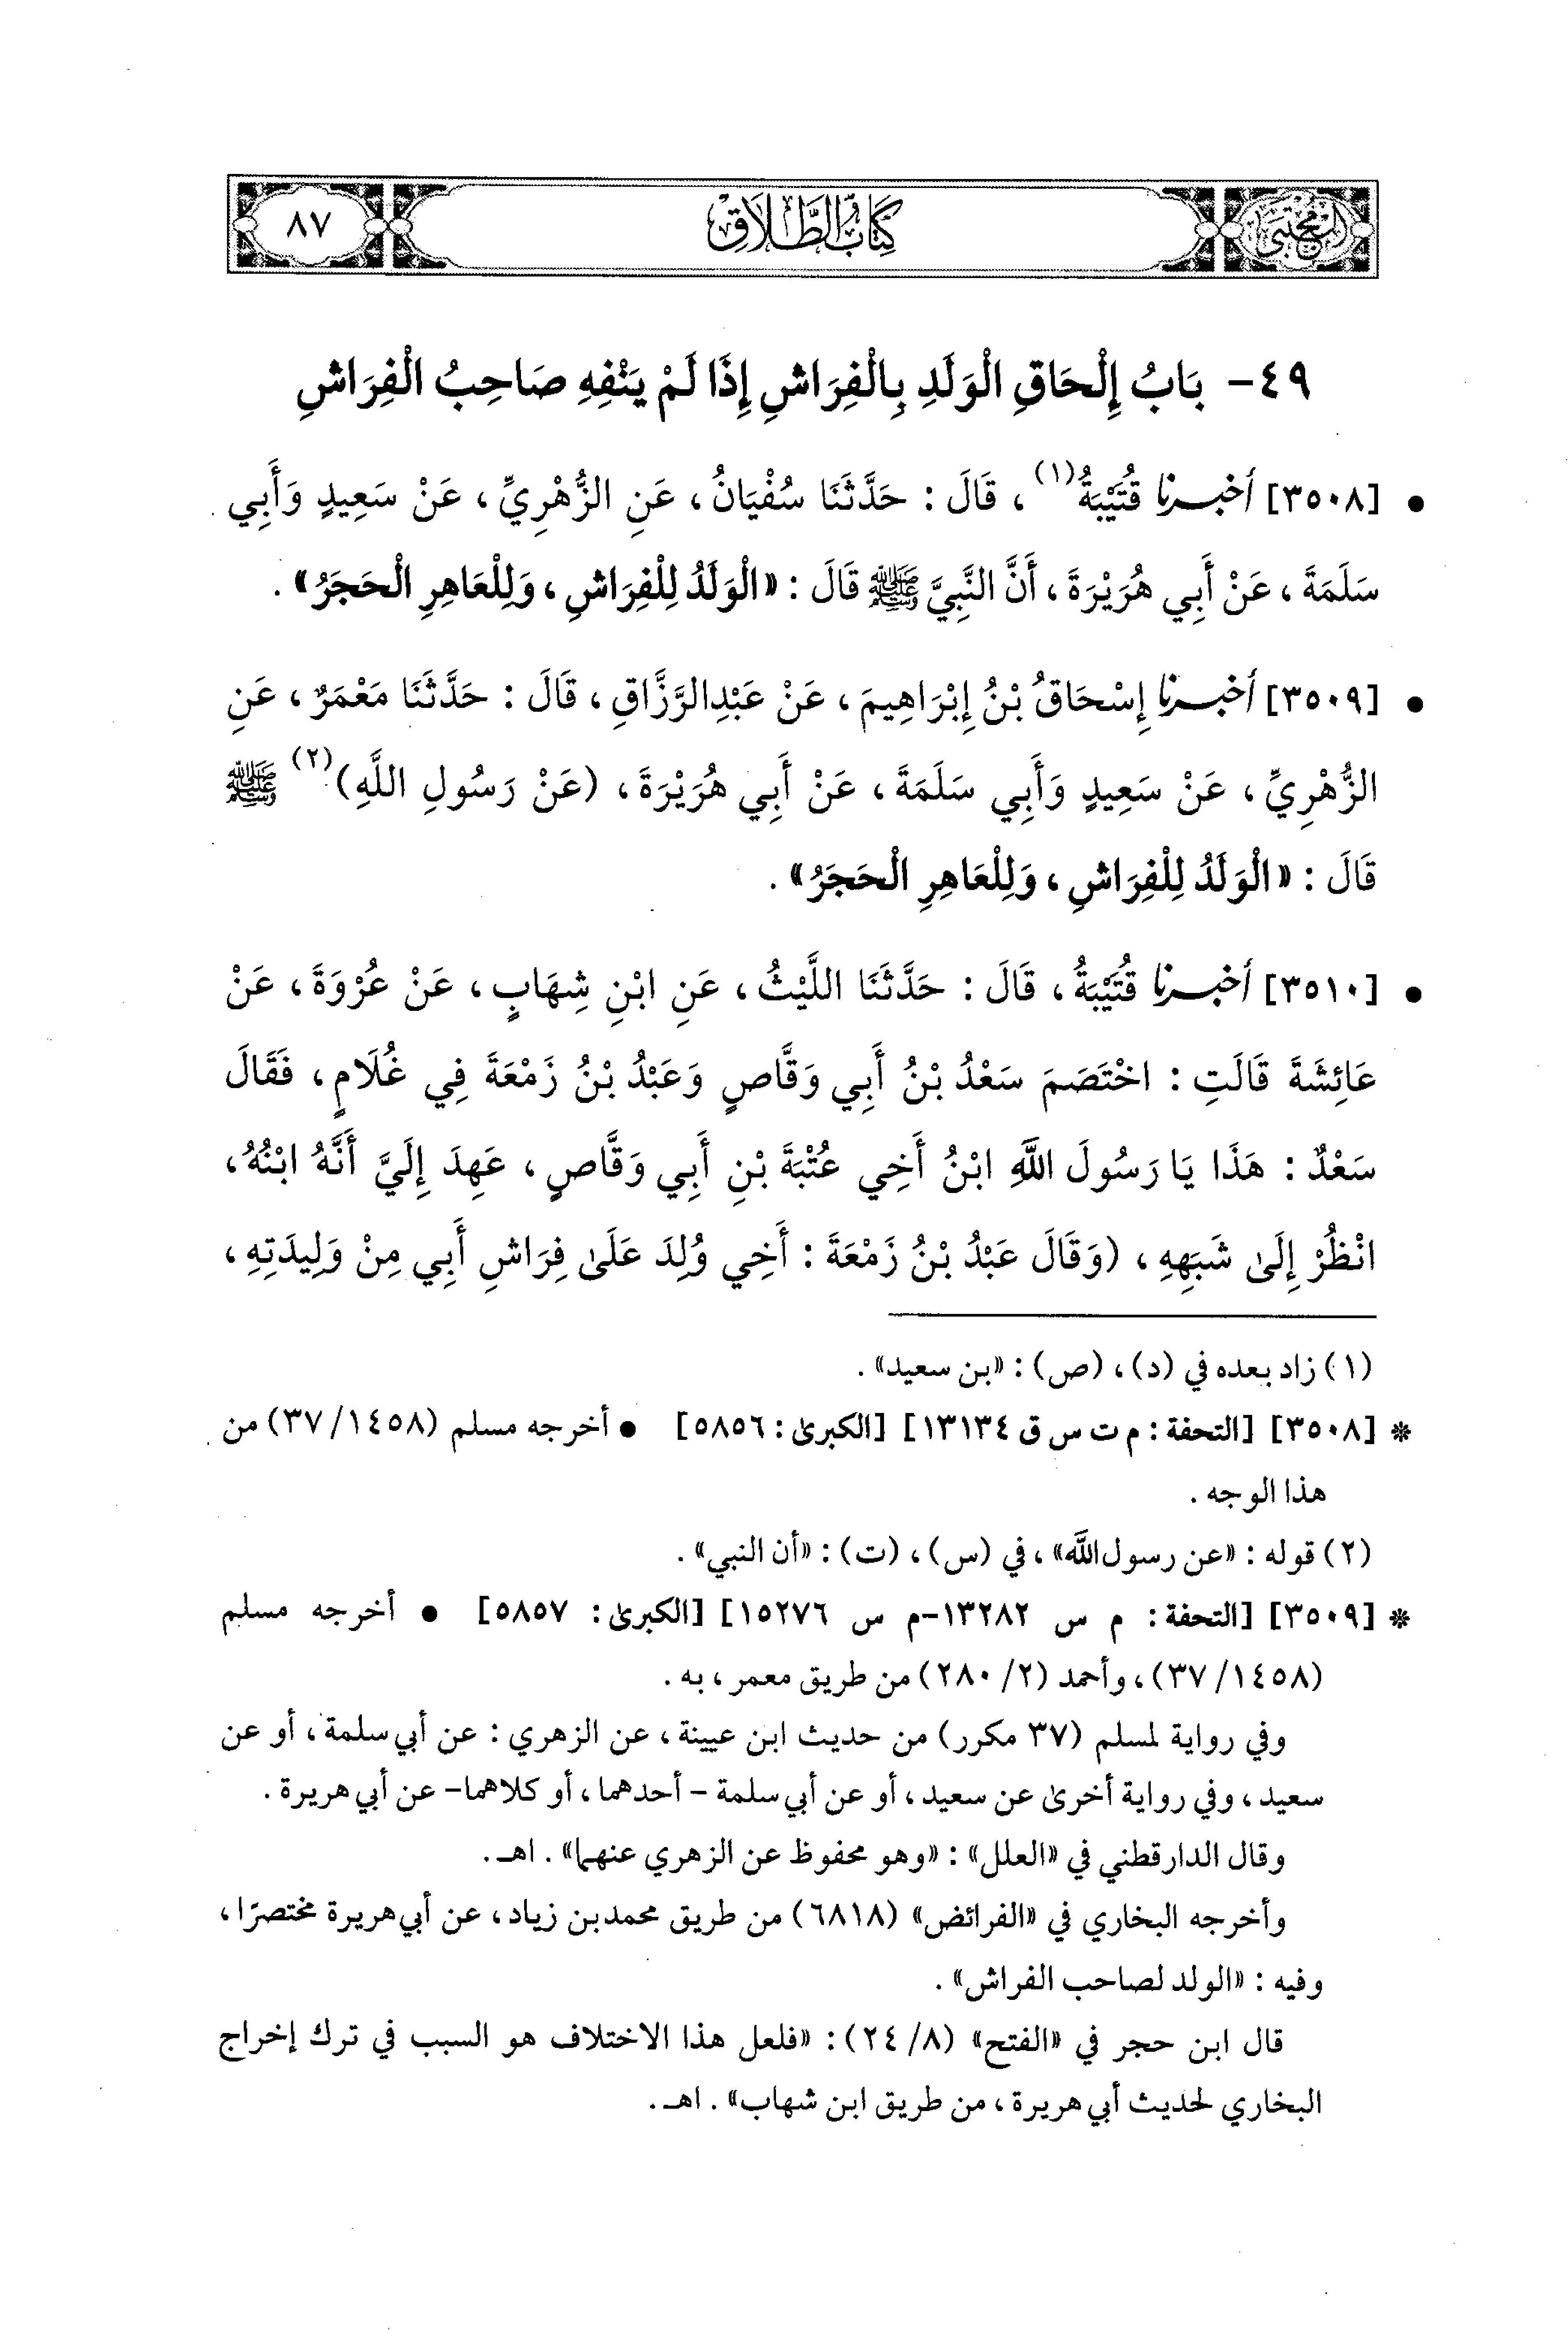 المجتبى
كتاب الطلاق
٨٧
٤٩- بَابُ إِلْحَاقِ الْوَلَدِ بِالْفِرَاشِ إِذَا لَمْ يَنْفِهِ صَاحِبُ الْفِرَاشِ
• [٣٥٠٨] أخبرنا قُتَيْبَةُ(١)، قَالَ: حَدَّثَنَا سُفْيَانُ، عَنِ الزُّهْرِيِّ، عَنْ سَعِيدٍ وَأَبِي
سَلَمَةَ، عَنْ أَبِي هُرَيْرَةَ، أَنَّ النَّبِيَّ ﷺ قَالَ: «الْوَلَدُ لِلْفِرَاشِ، وَلِلْعَاهِرِ الْحَجَرُ».
• [٣٥٠٩] أخبرنا إِسْحَاقُ بْنُ إِبْرَاهِيمَ، عَنْ عَبْدِالرَّزَّاقِ، قَالَ: حَدَّثَنَا مَعْمَرٌ، عَنِ
الزُّهْرِيِّ، عَنْ سَعِيدٍ وَأَبِي سَلَمَةَ، عَنْ أَبِي هُرَيْرَةَ، (عَنْ رَسُولِ اللَّهِ)(٢) ﷺ
قَالَ: «الْوَلَدُ لِلْفِرَاشِ، وَلِلْعَاهِرِ الْحَجَرُ».
• [٣٥١٠] أخبرنا قُتَيْبَةُ، قَالَ: حَدَّثَنَا اللَّيْثُ، عَنِ ابْنِ شِهَابٍ، عَنْ عُرْوَةَ، عَنْ
عَائِشَةَ قَالَتِ: اخْتَصَمَ سَعْدُ بْنُ أَبِي وَقَّاصٍ وَعَبْدُ بْنُ زَمْعَةَ فِي غُلَامٍ، فَقَالَ
سَعْدٌ: هَذَا يَا رَسُولَ اللَّهِ ابْنُ أَخِي عُتْبَةَ بْنِ أَبِي وَقَّاصٍ، عَهِدَ إِلَيَّ أَنَّهُ ابْنُهُ،
انْظُرْ إِلَىٰ شَبَهِهِ، (وَقَالَ عَبْدُ بْنُ زَمْعَةَ: أَخِي وُلِدَ عَلَىٰ فِرَاشِ أَبِي مِنْ وَلِيدَتِهِ،
(١) زاد بعده في (د)، (ص): «بن سعيد».
* [٣٥٠٨] [التحفة: م ت س ق ١٣١٣٤] [الكبرىٰ: ٥٨٥٦] • أخرجه مسلم (١٤٥٨/ ٣٧) من
هذا الوجه.
(٢) قوله: «عن رسول الله»، في (س)، (ت): «أن النبي».
* [٣٥٠٩] [التحفة: م س ١٣٢٨٢-م س ١٥٢٧٦] [الكبرىٰ: ٥٨٥٧] • أخرجه مسلم
(١٤٥٨/ ٣٧)، وأحمد (٢/ ٢٨٠) من طريق معمر، به.
وفي رواية لمسلم (٣٧ مكرر) من حديث ابن عيينة، عن الزهري: عن أبي سلمة، أو عن
سعيد، وفي رواية أخرىٰ عن سعيد، أو عن أبي سلمة - أحدهما، أو كلاهما- عن أبي هريرة.
وقال الدارقطني في «العلل»: «وهو محفوظ عن الزهري عنهما». اهـ.
وأخرجه البخاري في «الفرائض» (٦٨١٨) من طريق محمد بن زياد، عن أبي هريرة مختصرًا،
وفيه: «الولد لصاحب الفراش».
قال ابن حجر في «الفتح» (٨/ ٢٤): «فلعل هذا الاختلاف هو السبب في ترك إخراج
البخاري لحديث أبي هريرة، من طريق ابن شهاب». اهـ.